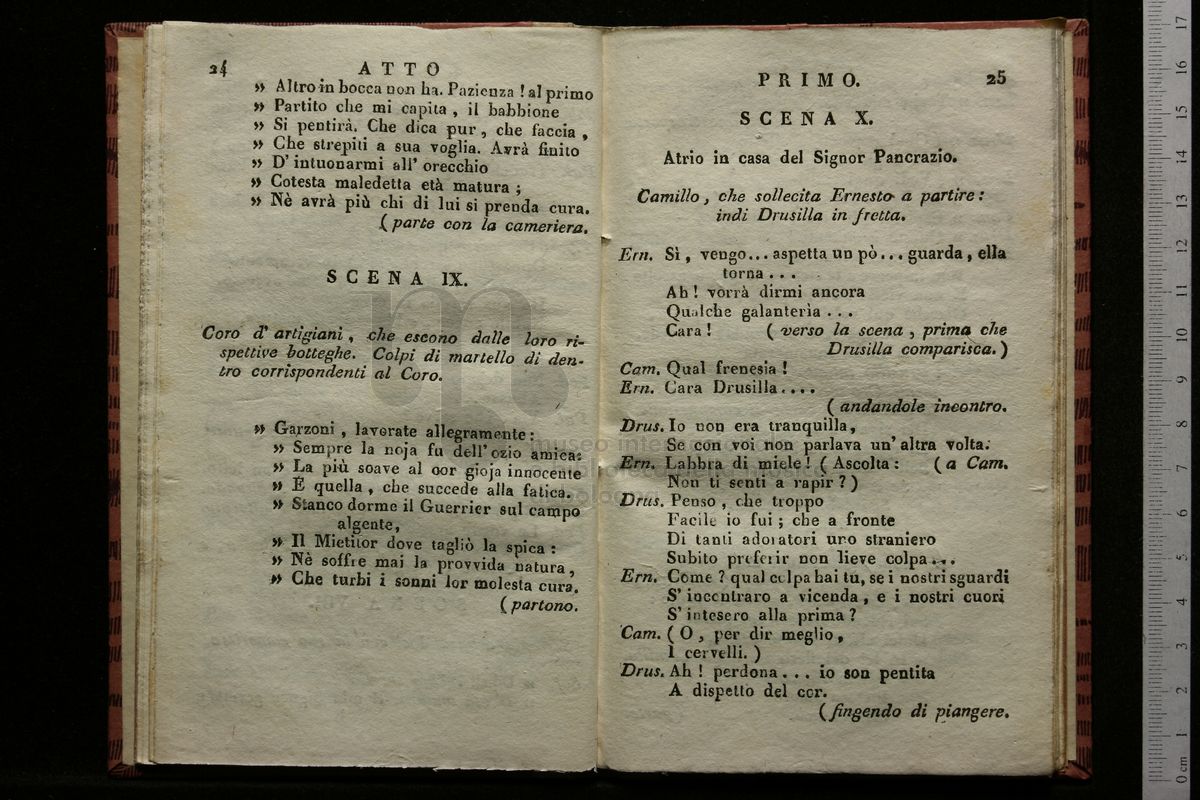 24 ATTO
» Altro in bocca non ha. Pazienza ! al primo
» Partito che mi capita , il babbione
» Si pentirà. Che dica pur , che faccia ,
» Che strepiti a sua voglia. Avrà finito
» D' intuonarmi all' orecchio
» Cotesta maledetta età matura ;
» Nè avrà più chi di lui si prenda cura.
( parte con la cameriera.
SCENA IX.
Coro d' artigiani , che escono dalle loro ri-
spettive botteghe. Colpi di martello di den-
tro corrispondenti al Coro.
» Garzoni , lavorate allegramente :
» Sempre la noja fu dell' ozio amica:
» La più soave al cor gioja innocente
» È quella , che succede alla fatica.
» Stanco dorme il Guerrier sul campo
algente,
» Il Mietitor dove tagliò la spica :
» Nè soffre mai la provvida natura ,
» Che turbi i sonni lor molesta cura.
( partono.
PRIMO. 25
SCENA X.
Atrio in casa del Signor Pancrazio.
Camillo , che sollecita Ernesto a partire :
indi Drusilla in fretta.
Ern. Sì , vengo... aspetta un pò... guarda , ella
torna ...
Ah ! vorrà dirmi ancora
Qualche galanteria ...
Cara ! ( verso la scena , prima che
Drusilla comparisca. )
Cam. Qual frenesia !
Ern. Cara Drusilla....
( andandole incontro.
Drus. Io non era tranquilla,
Se con voi non parlava un' altra volta.
Ern. Labbra di miele ! ( Ascolta : ( a Cam.
Non ti senti a rapir ? )
Drus. Penso , che troppo
Facile io fui ; che a fronte
Di tanti adoratori uno straniero
Subito preferir non lieve colpa...
Ern. Come ? qual colpa hai tu, se i nostri sguardi
S' incontraro a vicenda , e i nostri cuori
S' intesero alla prima ?
Cam. ( O , per dir meglio ,
I cervelli. )
Drus. Ah ! perdona... io son pentita
A dispetto del cor.
( fingendo di piangere.
0 cm 1 2 3 4 5 6 7 8 9 10 11 12 13 14 15 16 17